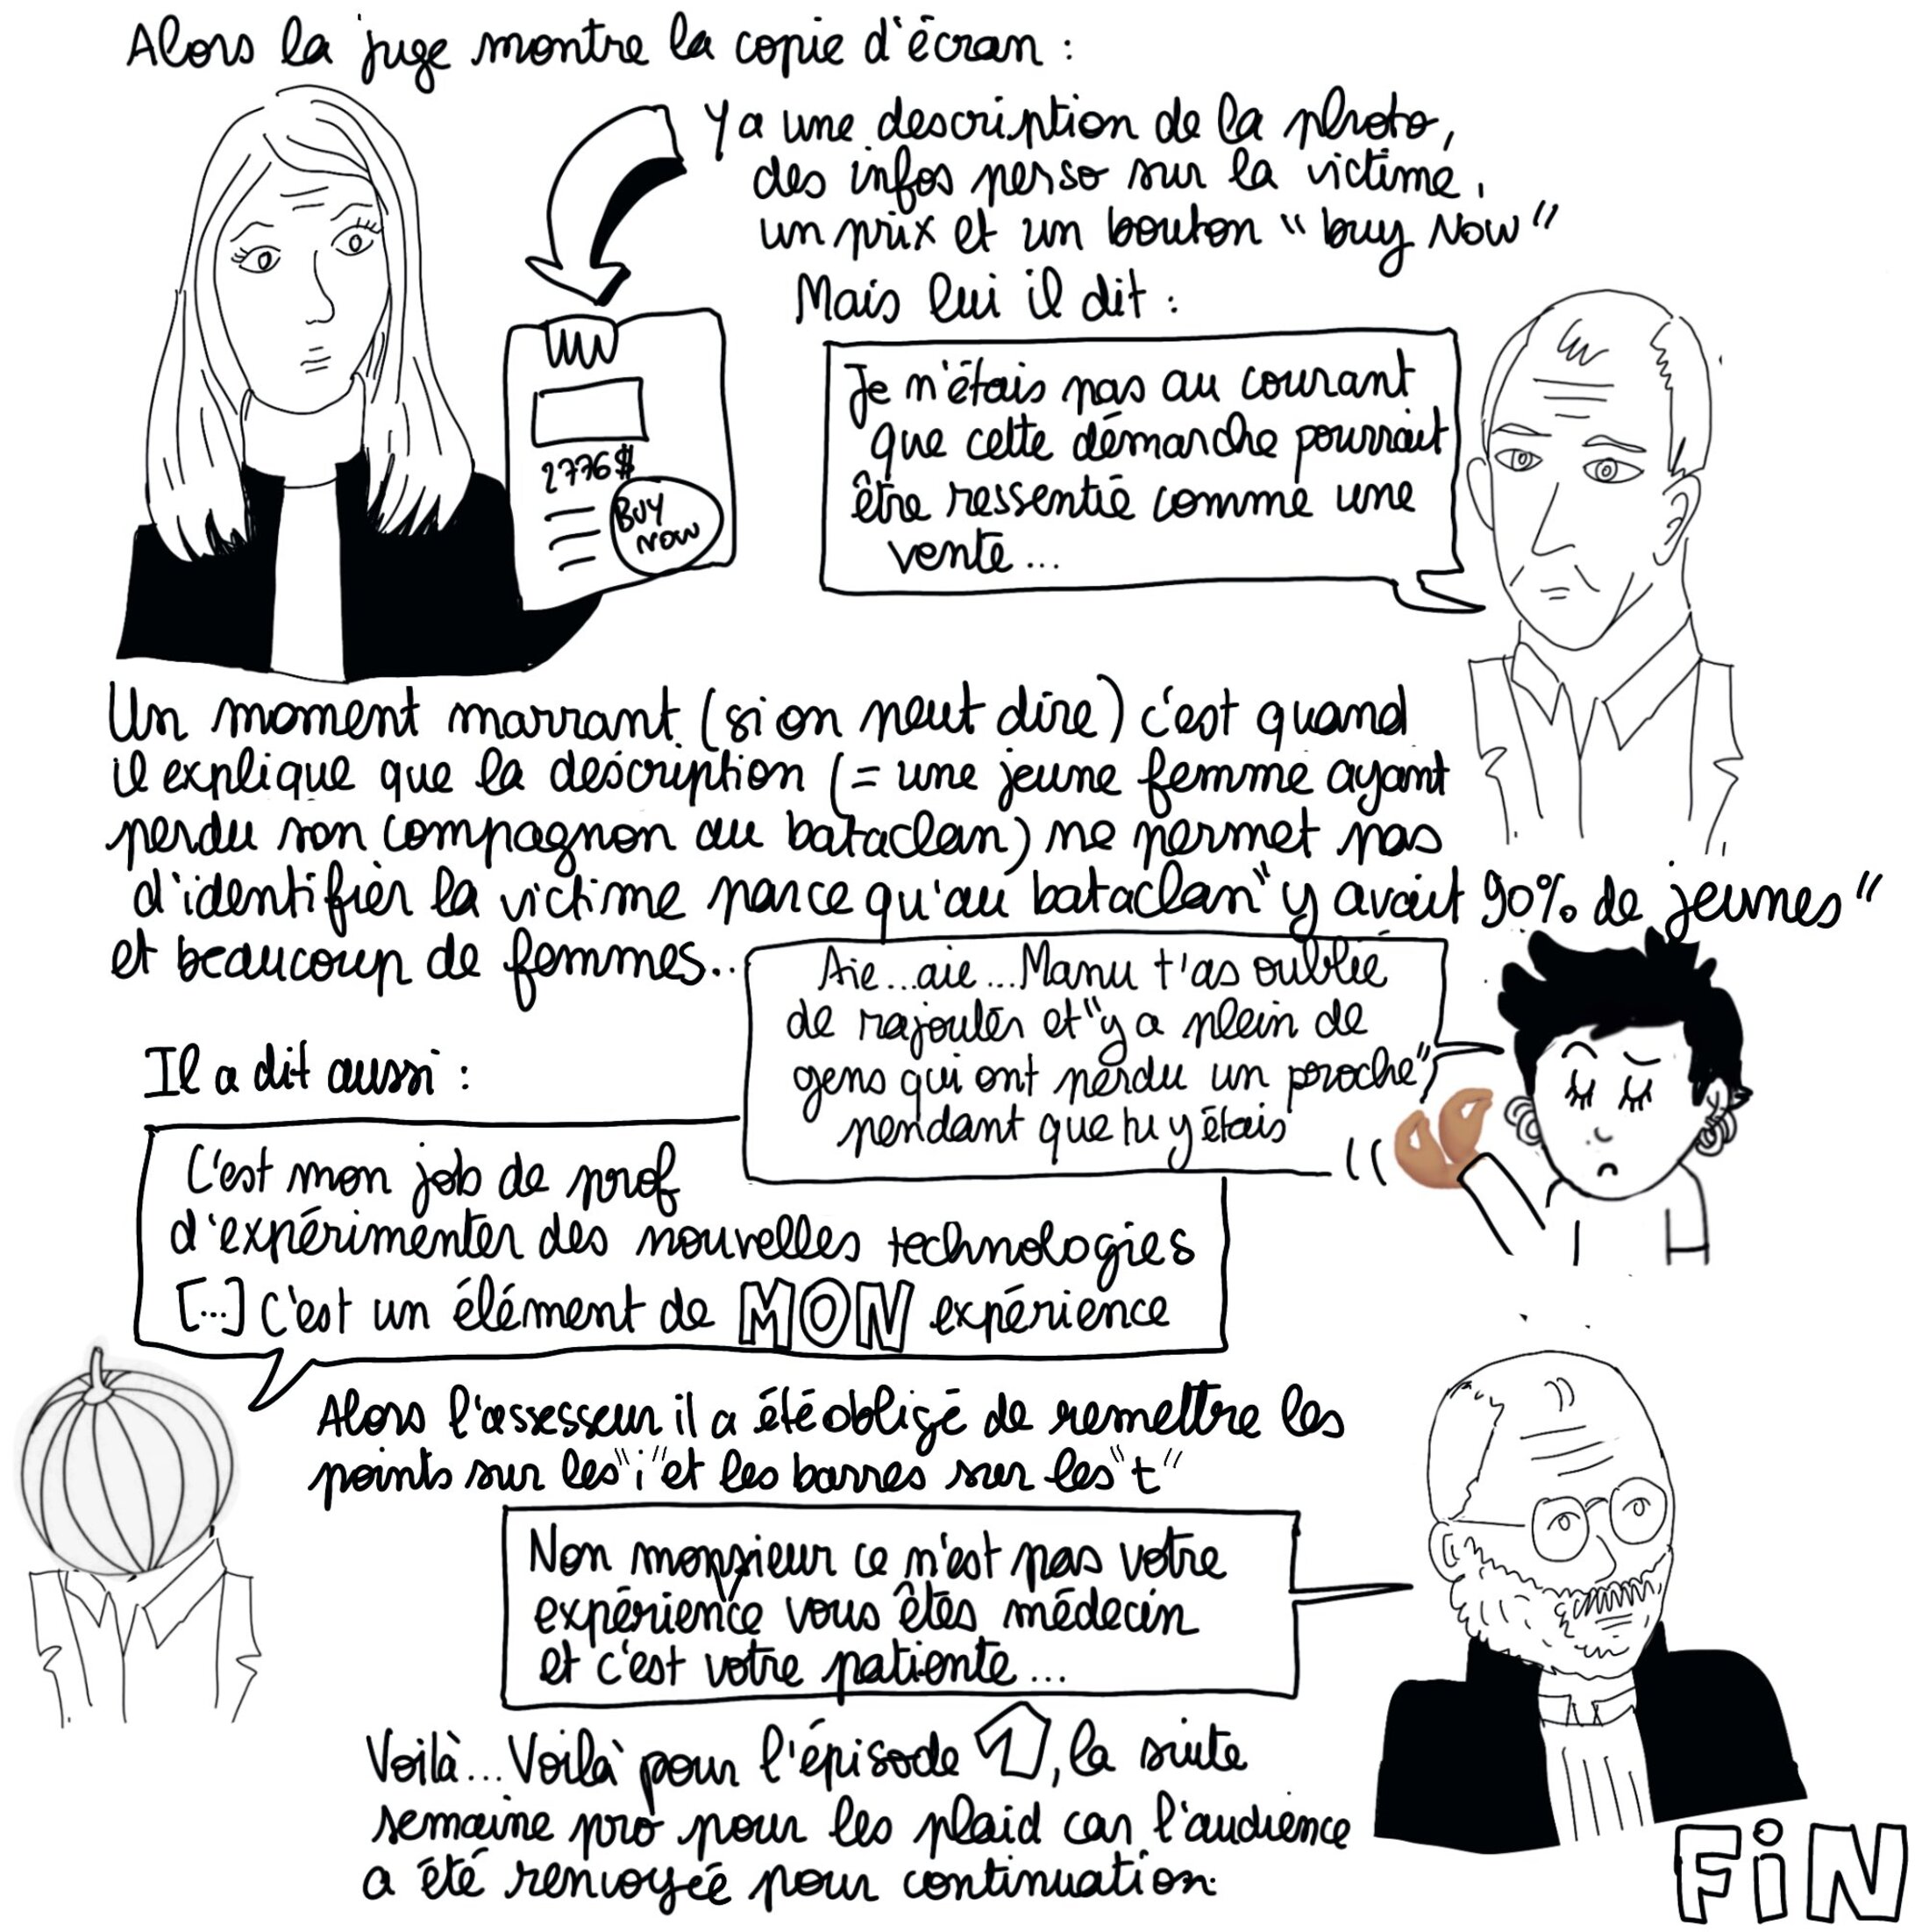 Alors la juge montre la copie d'écran :
Y a une description de la photo,
des infos perso sur la victime,
un prix et un bouton "buy Now"
Mais lui il dit :
2776$
BUY
NOW
Je n'étais pas au courant
que cette démarche pourrait
être ressentie comme une
vente...
Un moment marrant (si on peut dire) c'est quand
il explique que la description (= une jeune femme ayant
perdu son compagnon au bataclan) ne permet pas
d'identifier la victime parce qu'au bataclan "y avait 90% de jeunes"
et beaucoup de femmes...
Aie...aie...Manu t'as oublié
de rajouter et "y a plein de
gens qui ont perdu un proche"
pendant que tu y étais
Il a dit aussi :
C'est mon job de prof
d'expérimenter des nouvelles technologies
[...] c'est un élément de MON expérience
Alors l'assesseur il a été obligé de remettre les
points sur les "i" et les barres sur les "t"
Non monsieur ce n'est pas votre
expérience vous êtes médecin
et c'est votre patiente...
Voilà...Voilà pour l'épisode 1, la suite
semaine pro pour les plaid car l'audience
a été renvoyée pour continuation.
FiN